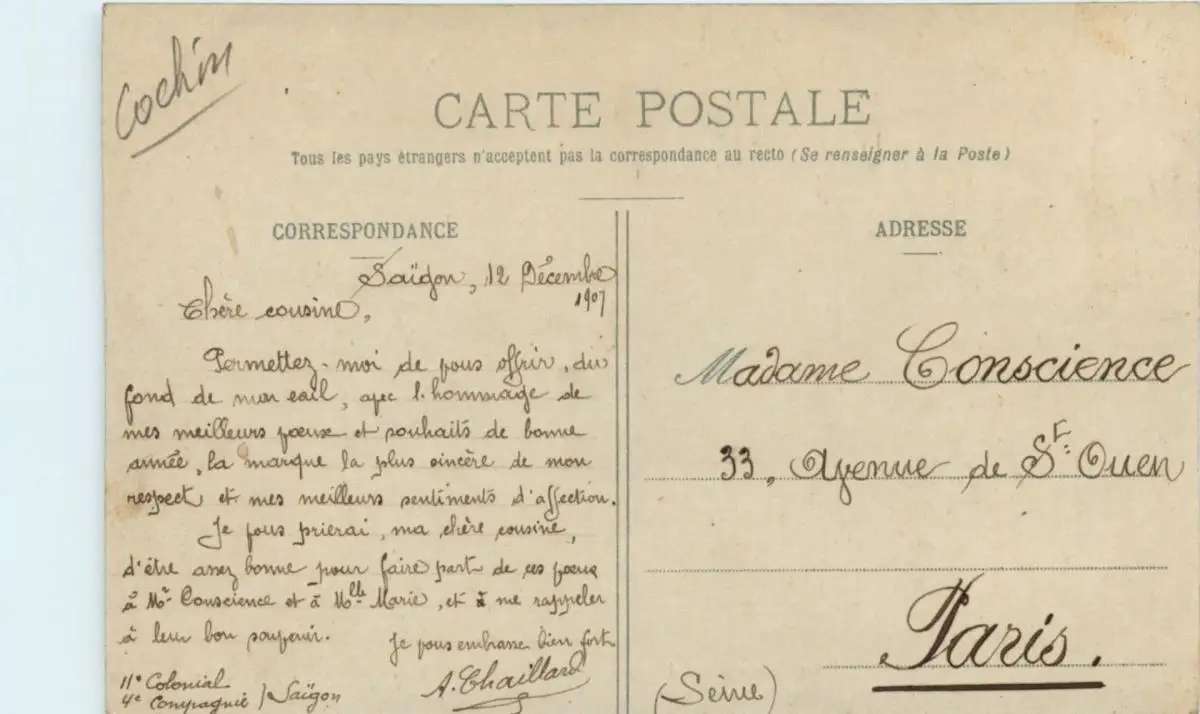 Cochin
CARTE POSTALE
Tous les pays étrangers n'acceptent pas la correspondance au recto (Se renseigner à la Poste)
CORRESPONDANCE
Saïgon, 12 Décembre
1907
Chère cousine,
Permettez-moi de vous offrir, du
fond de mon exil, avec l'hommage de
mes meilleurs vœux et souhaits de bonne
année, la marque la plus sincère de mon
respect et mes meilleurs sentiments d'affection.
Je vous prierai, ma chère cousine,
d'être assez bonne pour faire part de ces vœux
à Mr Conscience et à Mlle Marie, et à me rappeler
à leur bon souvenir.
Je vous embrasse bien fort
A. Chaillard
11e Colonial
4e Compagnie / Saïgon
ADRESSE
Madame Conscience
33, Avenue de St Ouen
Paris.
(Seine)